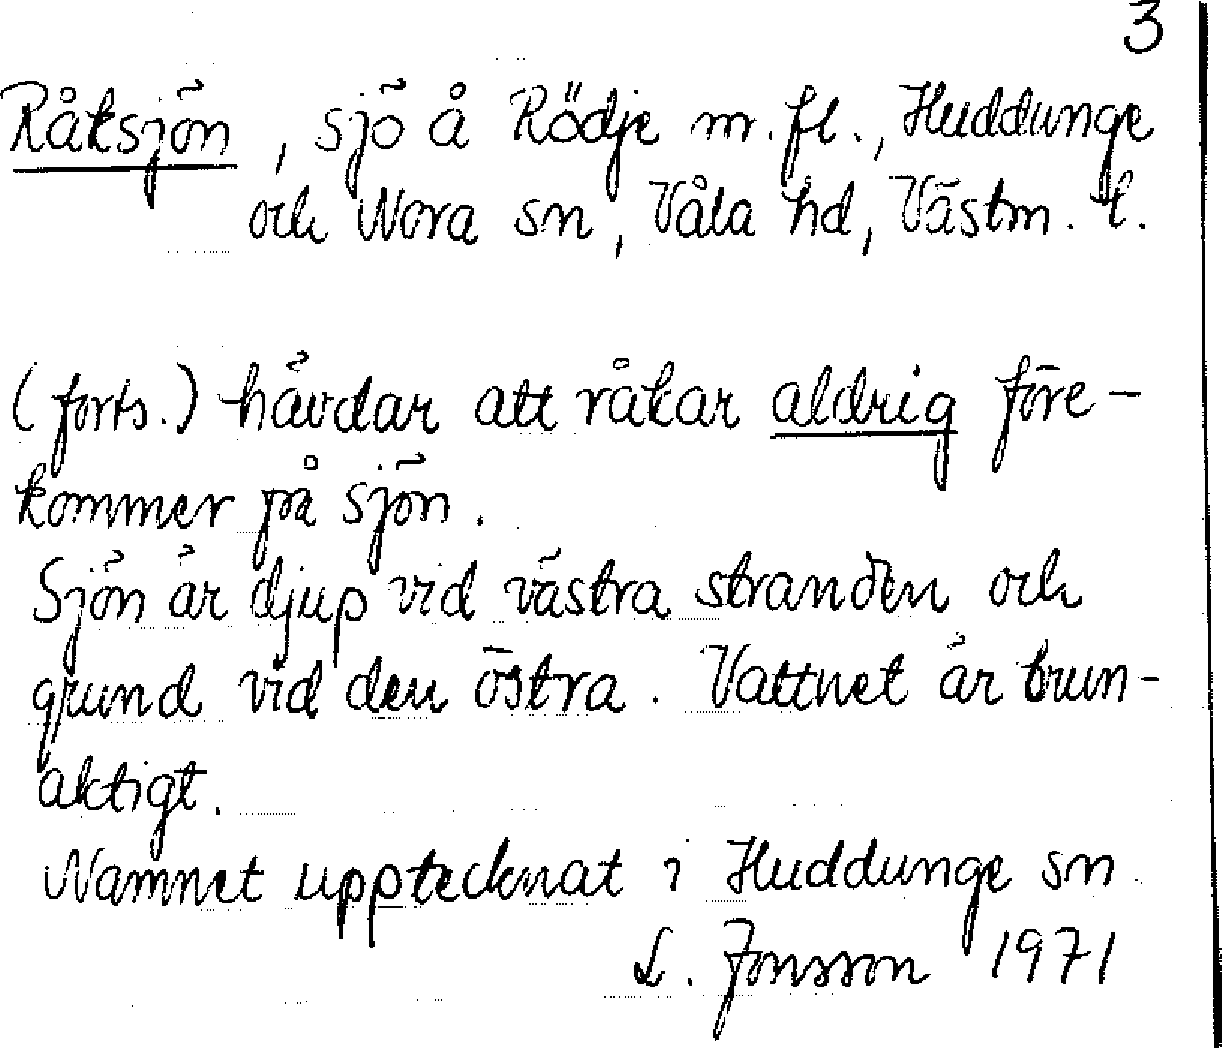 3
Råksjön, sjö å Rödje m. fl., Huddunge
och Nora sn, Våla hd, Västm. l.
(forts.) hävdar att råkar aldrig före-
kommer på sjön.
Sjön är djup vid västra stranden och
grund vid den östra. Vattnet är brun-
aktigt.
Namnet upptecknat i Huddunge sn
L. Jonsson 1971